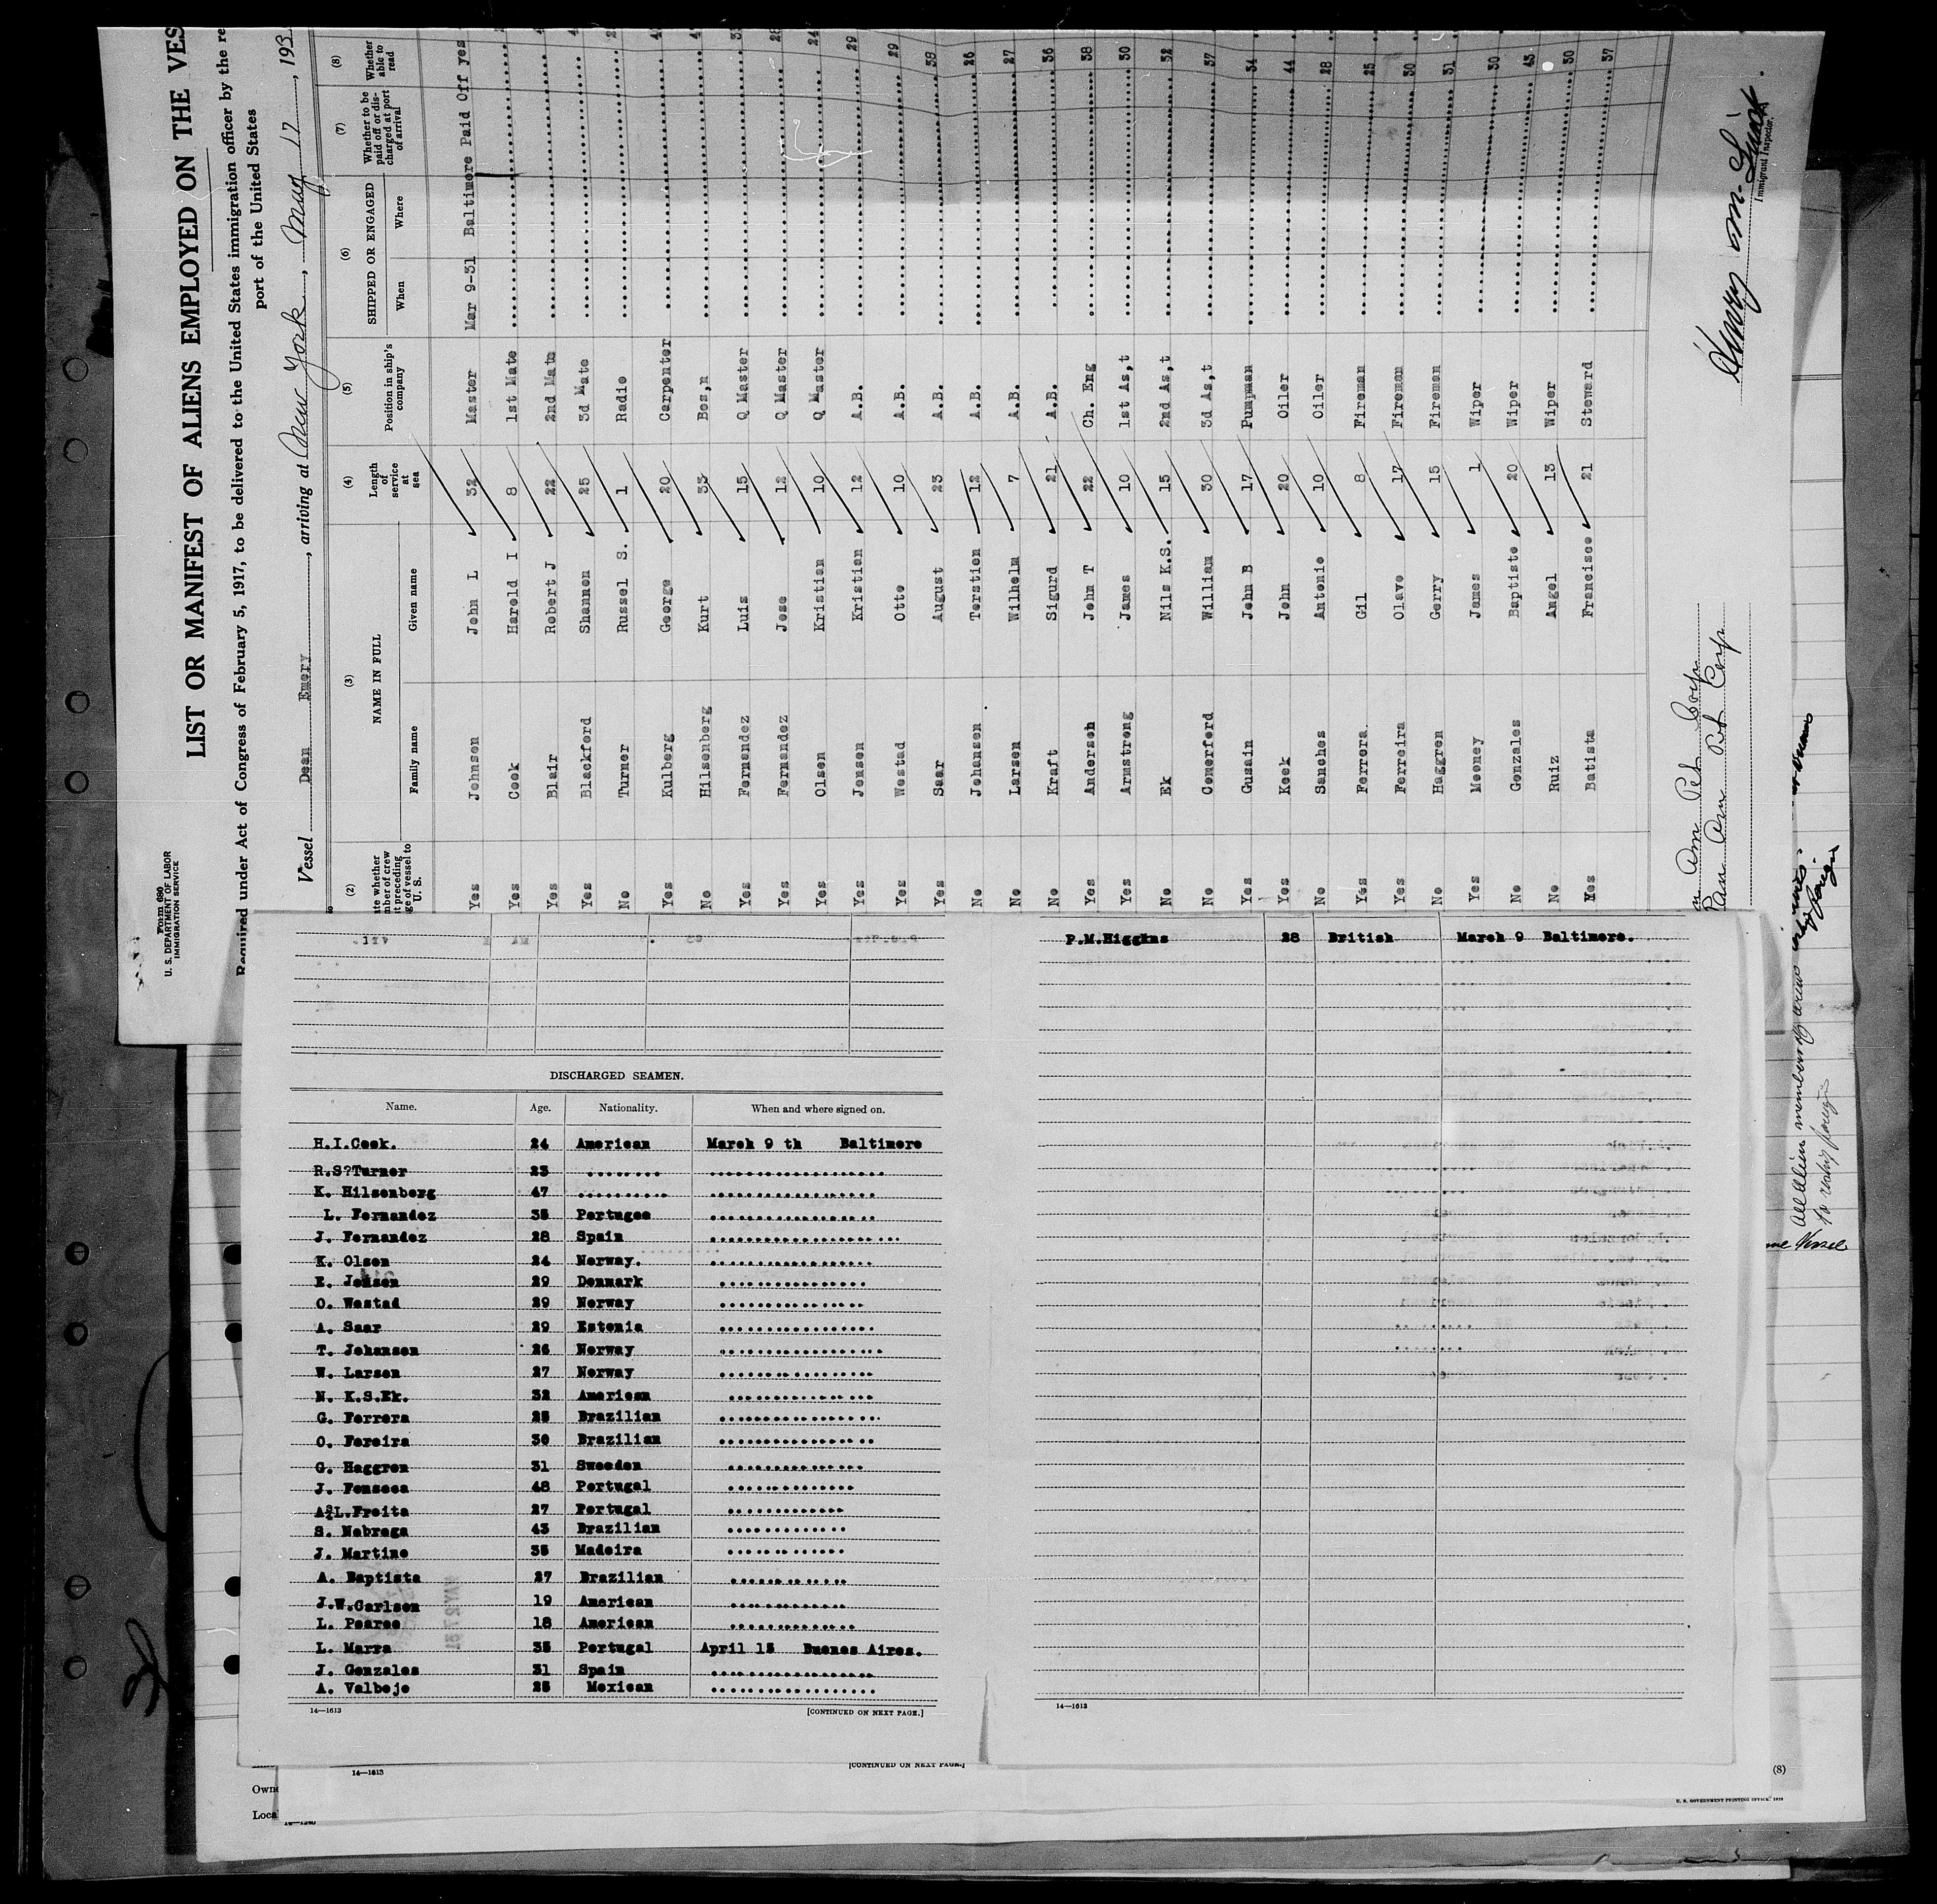 Form 680
U. S. DEPARTMENT OF LABOR
IMMIGRATION SERVICE
LIST OR MANIFEST OF ALIENS EMPLOYED ON THE VES
Required under Act of Congress of February 5, 1917, to be delivered to the United States immigration officer by the re
port of the United States
Vessel Dean Emery, arriving at New York, May 17, 193
(2) (3) (4) (5) (6) (7) (8)
NAME IN FULL
SHIPPED OR ENGAGED
Family name Given name
Length of service at sea
Position in ship's company
When Where
Whether to be paid off or discharged at port of arrival
Whether able to read
Yes Johnsen John L 32 Master Mar 9-31 Baltimore Paid Off yes
Yes Cook Harold I 8 1st Mate
Yes Blair Robert J 22 2nd Matn
Yes Blackford Shannon 25 3d Mate
No Turner Russel S. 1 Radio
Yes Kulberg George 20 Carpenter
No Hilsenberg Kurt 33 Bos,n
Yes Fernandez Luis 15 Q Master
Yes Fernandez Jose 12 Q Master
Yes Olsen Kristian 10 Q Master 24
Yes Jensen Kristian 12 A.B. 29
Yes Westad Otto 10 A.B. 29
Yes Saar August 23 A.B. 38
No Johansen Torstien 12 A.B. 26
No Larsen Wilhelm 7 A.B. 27
No Kraft Sigurd 21 A.B. 36
Yes Anderseh John T 22 Ch. Eng 38
Yes Armstrong James 10 1st As,t 30
No Ek Nils K.S. 15 2nd As,t 32
No Comerford William 30 3d As,t 37
Yes Gusain John B 17 Pumpman 34
Yes Keek John 20 Oiler 44
No Sanches Antonio 10 Oiler 28
Yes Ferrera. Gil 8 Fireman 25
Yes Ferreira Olave 17 Fireman 30
No Haggren Gerry 15 Fireman 31
Yes Mooney James 1 Wiper 30
No Gonzales Baptiste 20 Wiper 43
No Ruiz Angel 13 Wiper 30
Yes Batista Francisco 21 Steward 37
Am Pet Corp
Pan Am Pet Corp
Immigrant Inspector.
DISCHARGED SEAMEN.
Name. Age. Nationality. When and where signed on.
H.I.Cook. 24 American March 9 th Baltimore
R.S?Turner 23
K. Hilsenberg 47
L. Fernandez 35 Portugee
J. Fernandez 28 Spain
K. Olsen 24 Norway.
K. Jensen 29 Denmark
O. Westad 29 Norway
A. Saar 29 Estonia
T. Johansen 26 Norway
W. Larsen 27 Norway
N. K.S.Ek. 32 American
G. Ferrera 25 Brazilian
O. Fereira 30 Brazilian
G. Haggren 31 Sweeden
J. Fonseca 48 Portugal
L.Freita 27 Portugal
S. Nobrega 43 Brazilian
J. Martine 35 Madeira
A. Baptista 27 Brazilian
J.W.Carlsen 19 American
L. Pearce 18 American
L. Marra 35 Portugal April 15 Buenos Aires.
J. Gonzales 31 Spain
A. Valbeje 25 Mexican
14—1613 [CONTINUED ON NEXT PAGE.]
P.M.Higgins 28 British March 9 Baltimore.
14—1613
14—1613 [CONTINUED ON NEXT PAGE.]
(8)
U. S. GOVERNMENT PRINTING OFFICE: 1929
Owne
Loca
All Alien members of crews
to reship foreign
me Vessel